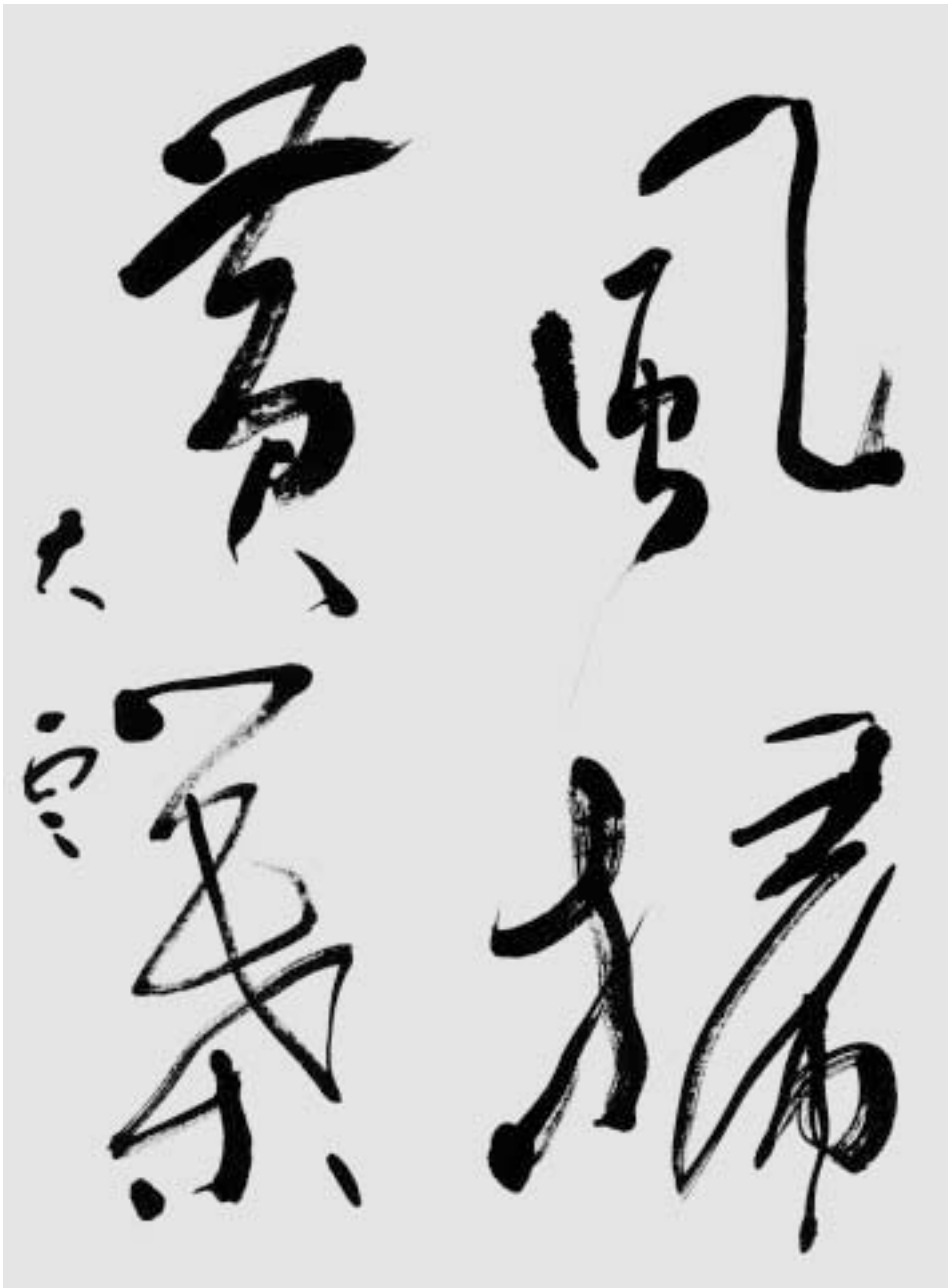 風掃
黄葉
大